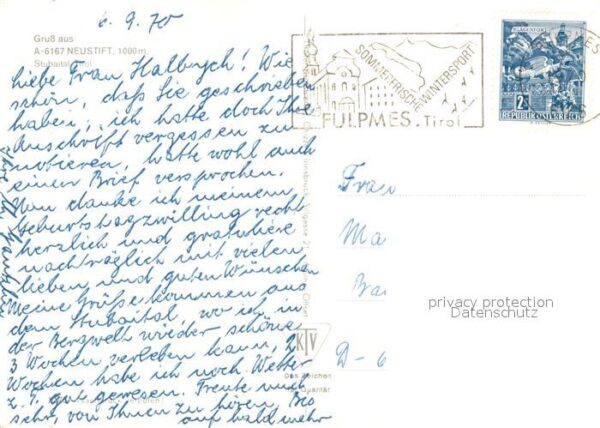 6.9.70
Gruß aus
A-6167 NEUSTIFT, 1000m.
Stubaital, Tirol
liebe Frau Halbrych! Wie
schön, daß Sie geschrieben
haben; ich hatte doch Ihre
Anschrift vergessen zu
notieren, hatte wohl auch
einen Brief versprochen.
Nun danke ich meinem
Geburtstagzwilling recht
herzlich und gratuliere
nachträglich mit vielen
lieben und guten Wünschen
Meine Grüße kommen aus
dem Stubaital, wo ich in
der Bergwelt wieder schöne
3 Wochen verleben kann, 2
Wochen habe ich noch. Wetter
z. T. gut gewesen. Freute mich
sehr, von Ihnen zu hören. Bis
auf bald mehr
Ihre
SOMMERFRISCHE WINTERSPORT
FULPMES. Tirol
KLAGENFURT
S
2
REPUBLIK ÖSTERREICH
Frau
Ma
Ba
D-6
KTV
Das Zeichen
Qualität
privacy protection
Datenschutz